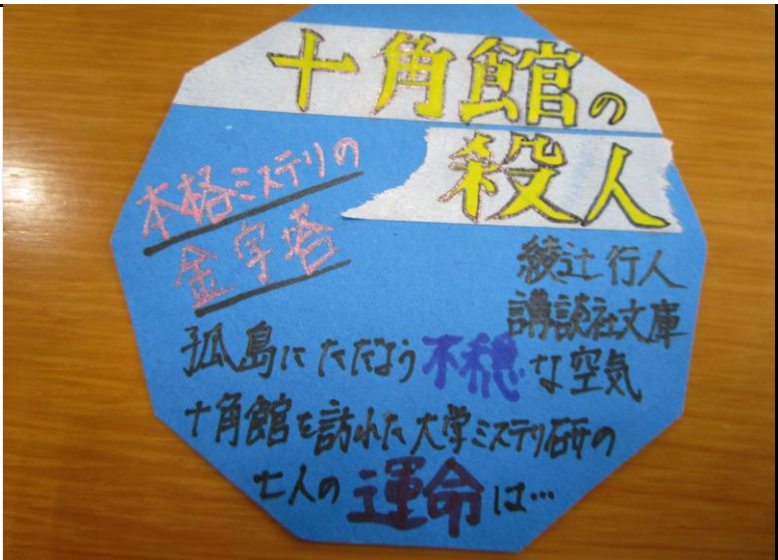 十角館の
殺人
本格ミステリの
金字塔
綾辻行人
講談社文庫
孤島にただよう不穏な空気
十角館を訪れた大学ミステリ研の
七人の運命は…